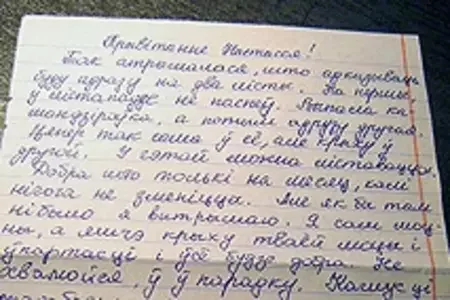 Прывітанне Настасся!
Так атрошалася, што адказваць
буду адразу на два лісты. На першы,
у лістападзе не паспеў. Папала ка-
мандзіроўка, а потым адразу другая.
Цяпер так сама ў ёй, але крыху ў
другой. У гэтай можна ліставацца.
Добра што толькі на месяц, калі
нічога не зменіцца. Але як бы там
ні было я вытрымаю. Я сам моц-
ны, а яшчэ крыху тваёй моцы і
ўпартасці і ўсё будзе добра. Не
хвалюйся, ў парадку. Калісьці